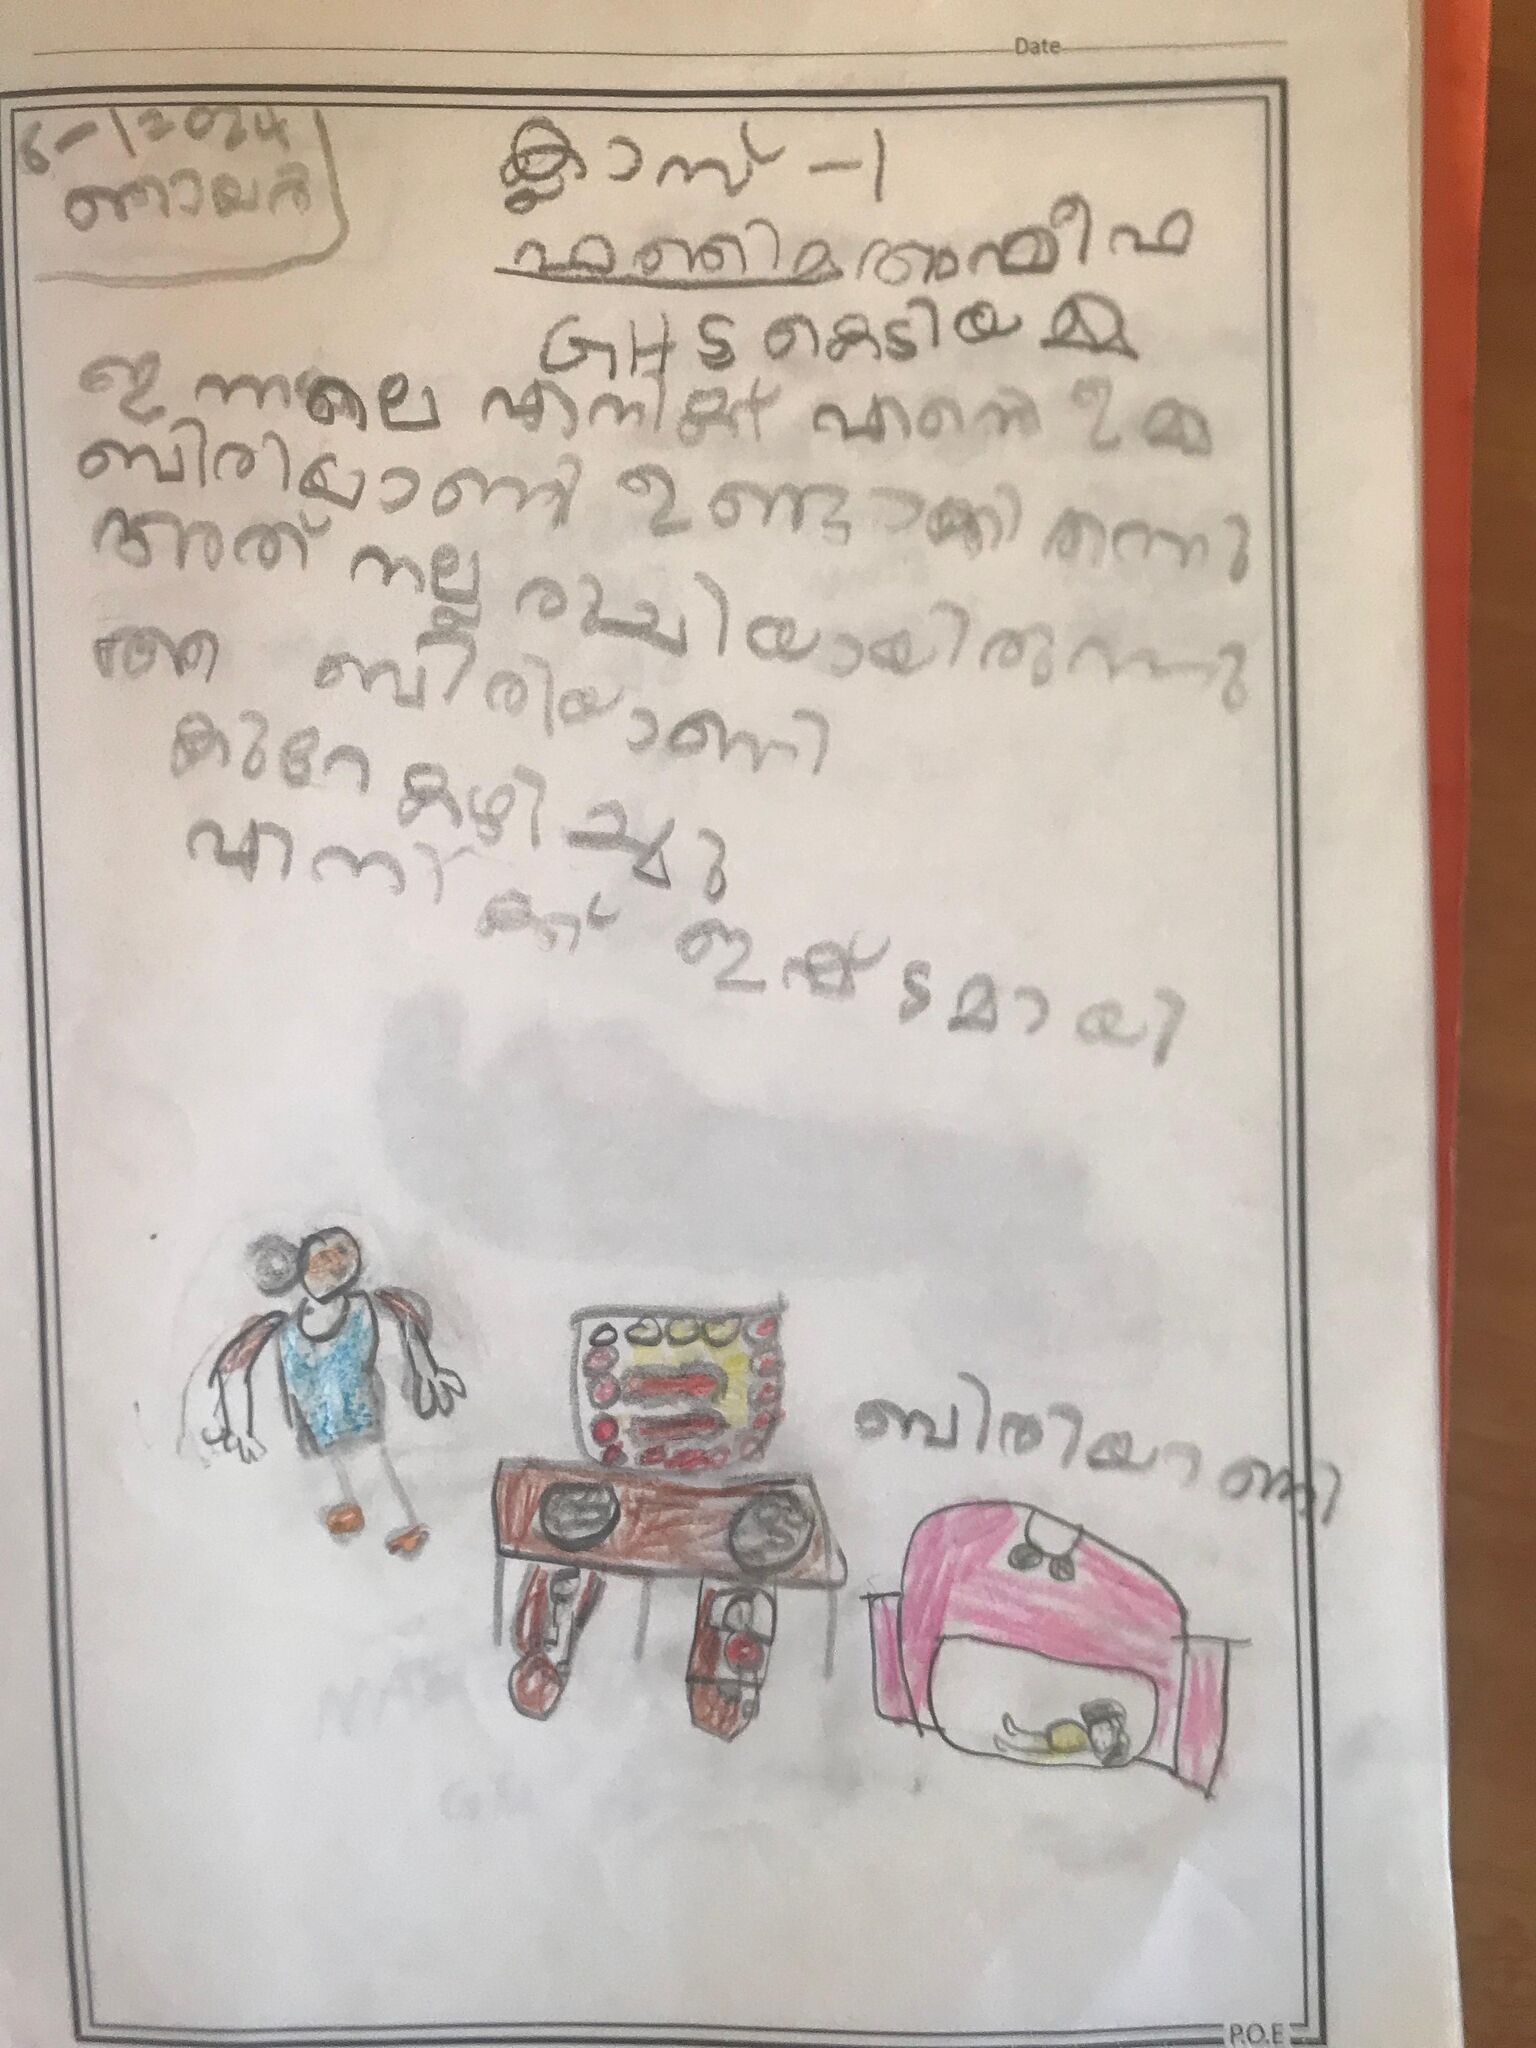 Date
6-1 2024
ഞായർ
ക്ലാസ് -1
ഫാത്തിമ
GHS കൊടിയമ്മ
ഇന്നലെ എനിക്ക് എന്റെ ഉമ്മ
ബിരിയാണി ഉണ്ടാക്കി തന്നു
അത് നല്ല രുചിയായിരുന്നു
ഞാ ബിരിയാണി
കുറേ കഴിച്ചു
എനിക്ക് ഇഷ്ടമായി
ബിരിയാണി
P.O.E